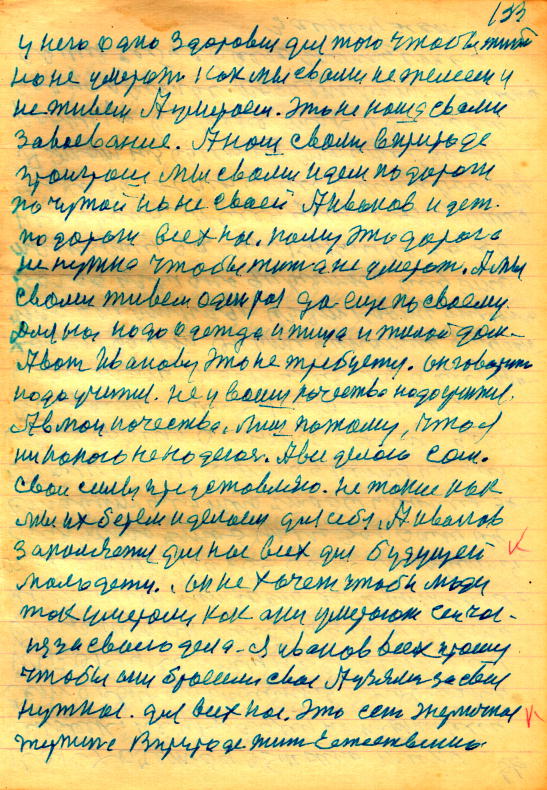 133
у него одно здоровия для того чтобы жить
но не умерать как мы свами не жевем и
не живем А умераем. Это не наша свами
завоевание. А наш свами в природе
проиграш мы свами идем по дороги
по чужой но не своей А Иванов идет.
по дороги всех нас. кому эта дорога
не нужна чтобы жить а не умерат. А мы
свами живем один раз да еще по своему.
для нас надо одежда и пища и жилой дом.
А вот Иванову это не требуету. он говорит
надо учится. не у ваших качества надо учится.
А в мои качества. лиш потому, что я
ни какого не надеюся. А все делаю сам.
свои силы представляю. не такие как
мы их берем и делаем для себя. А Иванов
заполячает для нас всех для будущей
молодежи. он не хочет чтобы люди
так умерали как они умерают сейчас.
из за своего дела. Я Иванов всех прошу
чтобы они бросили свое А узяли за свои
нужное. для всех нас. Это есть
жизнь В природе жит Естественно.